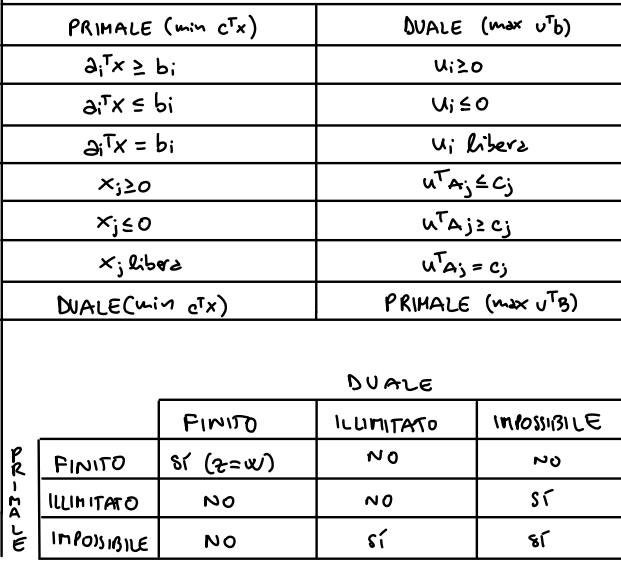 PRIMALE (min cᵀx) DUALE (max uᵀb)
aᵢᵀx ≥ bᵢ uᵢ≥0
aᵢᵀx ≤ bᵢ uᵢ≤0
aᵢᵀx = bᵢ uᵢ libera
xⱼ≥0 uᵀAⱼ≤cⱼ
xⱼ≤0 uᵀAⱼ≥cⱼ
xⱼ libera uᵀAⱼ=cⱼ
DUALE(min cᵀx) PRIMALE (max uᵀB)
DUALE
FINITO ILLIMITATO IMPOSSIBILE
PRIMALE
FINITO SÍ (z=w) NO NO
ILLIMITATO NO NO SÍ
IMPOSSIBILE NO SÍ SÍ